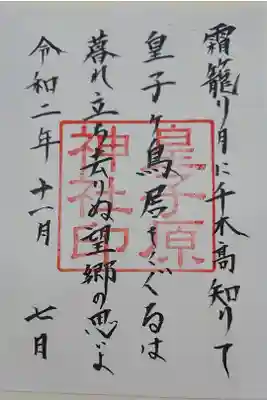 霜籠り月に千木高知りて
皇子ヶ鳥居くぐるは
暮れ立ち去りぬ望郷の思いよ
令和二年 十一月 七日
皇子原
神社印